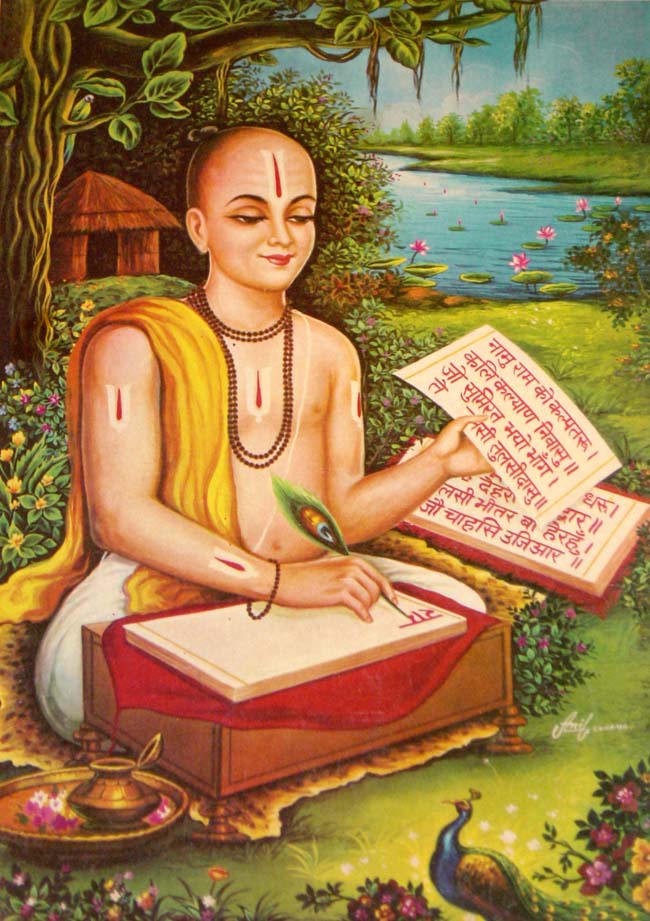 नामु राम को कल्पतरु।
कलि कल्याण निवासु॥
जौ सुमिरत भयो भाँग।
तुलसीदासु॥
धरु।
देहर
भीतर बाहेरहुँ।
जौ चाहसि उजिआर॥
राम
Anil